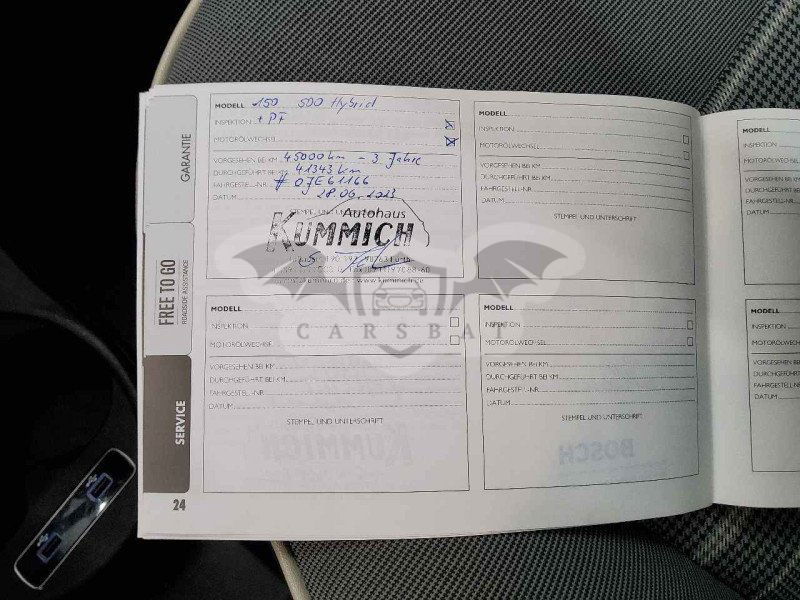 GARANTIE
FREE TO GO
ROADSIDE ASSISTANCE
SERVICE
24
MODELL 150 500 Hybrid
INSPEKTION + PF
MOTORÖLWECHSEL
VORGESEHEN BEI KM 45000 km - 3 Jahre
DURCHGEFÜHRT BEI KM 41343 km
FAHRGESTELL-NR. # 07E61166
DATUM 28.06.2023
STEMPEL UND UNTERSCHRIFT
Autohaus
KUMMICH
www.kummich.de
MODELL
INSPEKTION
MOTORÖLWECHSEL
VORGESEHEN BEI KM
DURCHGEFÜHRT BEI KM
FAHRGESTELL-NR.
DATUM
STEMPEL UND UNTERSCHRIFT
MODELL
INSPEKTION
MOTORÖLWECHSEL
VORGESEHEN BEI KM
DURCHGEFÜHRT BEI KM
FAHRGESTELL-NR.
DATUM
STEMPEL UND UNTERSCHRIFT
MODELL
INSPEKTION
MOTORÖLWECHSEL
VORGESEHEN BEI KM
DURCHGEFÜHRT BEI KM
FAHRGESTELL-NR.
DATUM
STEMPEL UND UNTERSCHRIFT
MODELL
INSPEKTION
MOTORÖLWECHSEL
VORGESEHEN BEI K
DURCHGEFÜHRT BE
FAHRGESTELL-NR.
DATUM
MODELL
INSPEKTION
MOTORÖLWECHSE
VORGESEHEN BEI
DURCHGEFÜHRT B
FAHRGESTELL-NR
DATUM
KUMMICH
BOSCH
CARSBA